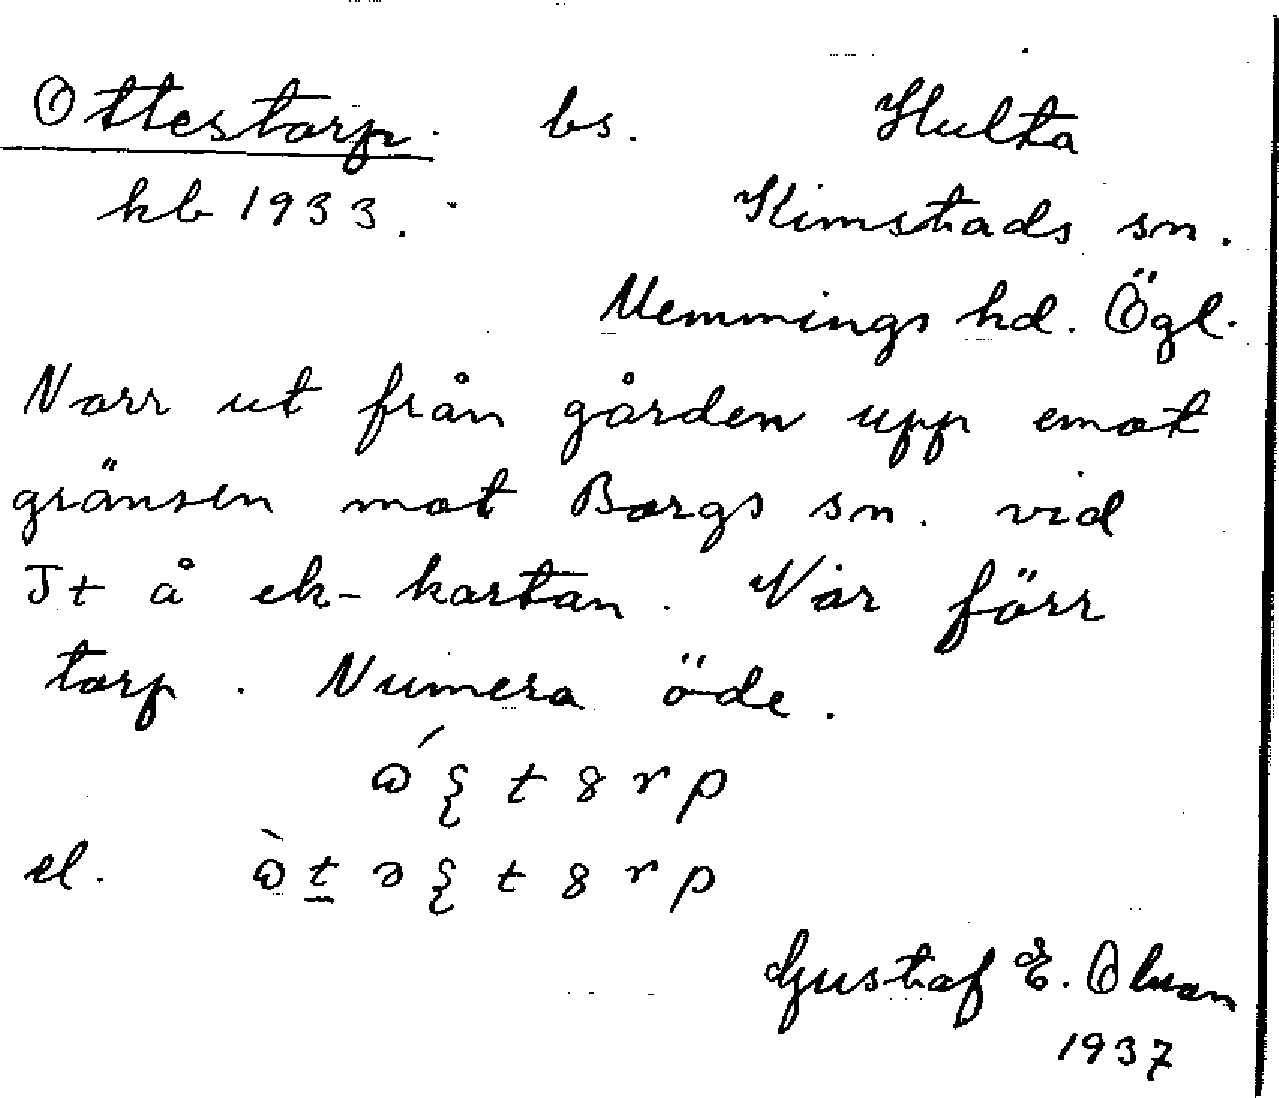 Ottestorp. bs. Hulta
kb 1933. Kimstads sn.
Memmings hd. Ögl.
Norr ut från gården upp emot
gränsen mot Borgs sn. vid
Jt å ek-kartan. Var förr
torp. Numera öde.
el.
Gustaf E. Olsson
1937